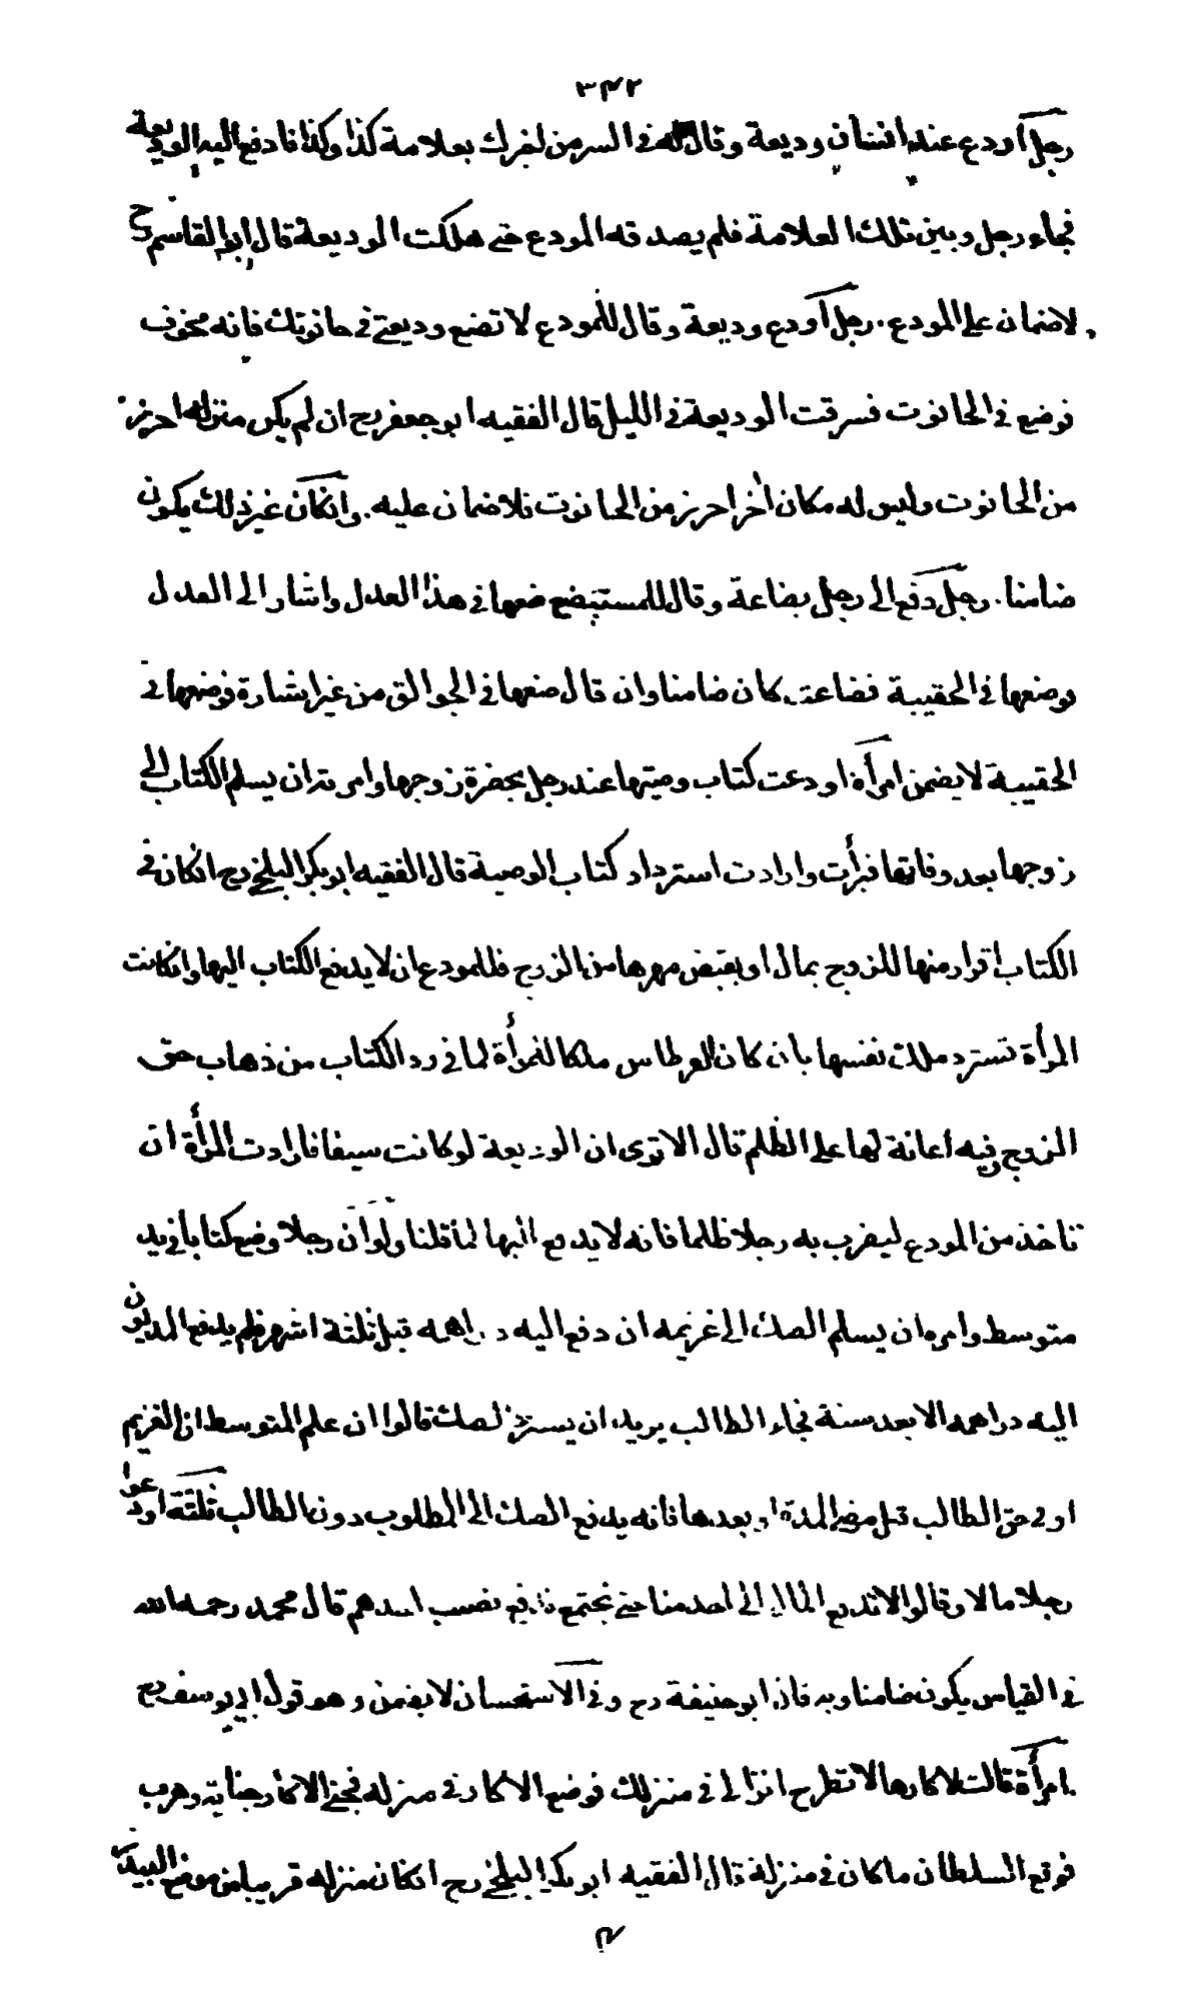 ٣٤٢
رجل أودع عنده انسان وديعة وقال له في السر من اخبرك بعلامة كذا وكذا فادفع اليه الوديعة
فجاء رجل وبين تلك العلامة فلم يصدقه المودع حتى هلكت الوديعة قال ابو القاسم رح
لا ضمان على المودع . رجل أودع وديعة وقال للمودع لا تضع وديعتي في حانوتك فانه مخوف
فوضع في الحانوت فسرقت الوديعة في الليل قال الفقيه ابو جعفر رح ان لم يكن منزله احرز
من الحانوت وليس له مكان اخر احرز من الحانوت فلا ضمان عليه . وانكان غير ذلك يكون
ضامنا . رجل دفع الى رجل بضاعة وقال للمستبضع ضعها في هذا العدل واشار الى العدل
فوضعها في الحقيبة فضاعت كان ضامنا وان قال ضعها في الجوالق من غير اشارة فوضعها في
الحقيبة لا يضمن امرأة اودعت كتاب وصيتها عند رجل بحضرة زوجها وامرته ان يسلم الكتاب الى
زوجها بعد وفاتها فبرأت وارادت استرداد كتاب الوصية قال الفقيه ابو بكر البلخي رح انكان في
الكتاب اقرار منها للزوج بمال او بقبض مهرها من الزوج فللمودع ان لا يدفع الكتاب اليها وانكانت
المرأة تسترد ملك نفسها بان كان القرطاس ملكا للمرأة لما في رد الكتاب من ذهاب حق
الزوج وفيه اعانة لها على الظلم قال الا ترى ان الوديعة لو كانت سيفا فارادت المرأة ان
تاخذ من المودع ليضرب به رجلا ظلما فانه لا يدفع اليها لما قلنا ولو ان رجلا وضع كتابا في يد
متوسط وامره ان يسلم الصك الى غريمه ان دفع اليه دراهمه قبل ثلثة اشهر فلم يدفع المديون
اليه دراهمه الا بعد سنة فجاء الطالب يريد ان يسترد الصك قالوا ان علم المتوسط ان الغريم
اوفى حق الطالب قبل مضى المدة او بعدها فانه يدفع الصك الى المطلوب دون الطالب ثلثة اودعوا
رجلا مالا وقالوا لا تدفع المال الى احد منا حتى نجتمع فدفع نصيب احدهم قال محمد رحمه الله
في القياس يكون ضامنا وبه قال ابو حنيفة رح وفي الاستحسان لا يضمن وهو قول ابي يوسف رح
امرأة قالت لاكارها لا تطرح انزالى في منزلك فوضع الاكار في منزله فجنى الاكار جناية وهرب
فرفع السلطان ما كان في منزله قال الفقيه ابو بكر البلخي رح انكان منزله قريبا من موضع البيدر